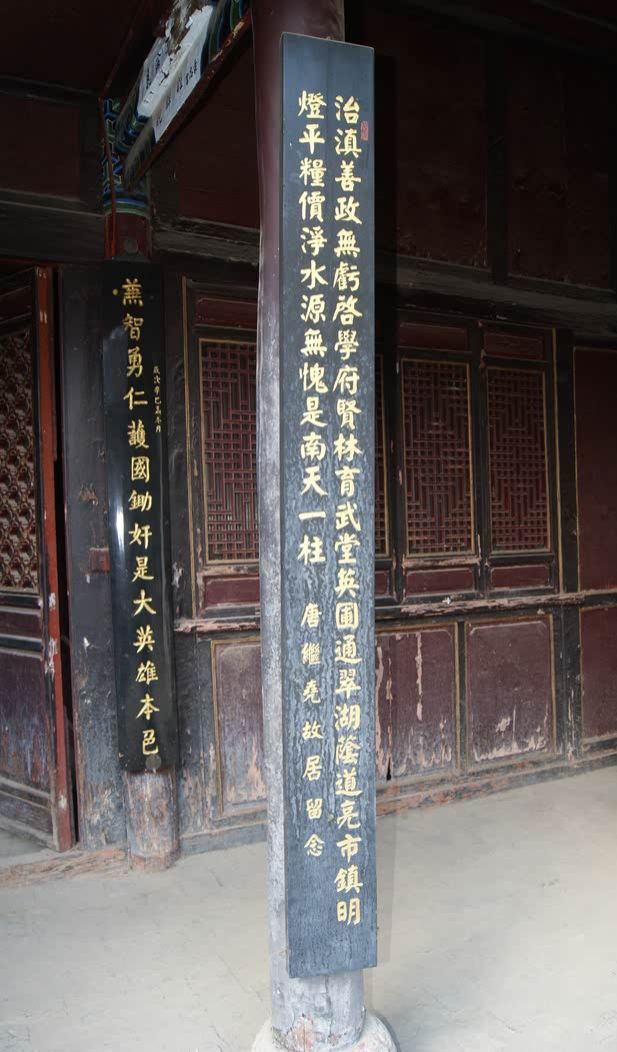 治滇善政無虧啓學府賢林育武堂英圃通翠湖蔭道亮市鎮明
燈平糧價淨水源無愧是南天一柱
唐繼堯故居留念
兼智勇仁護國鋤奸是大英雄本色
歲次辛巳